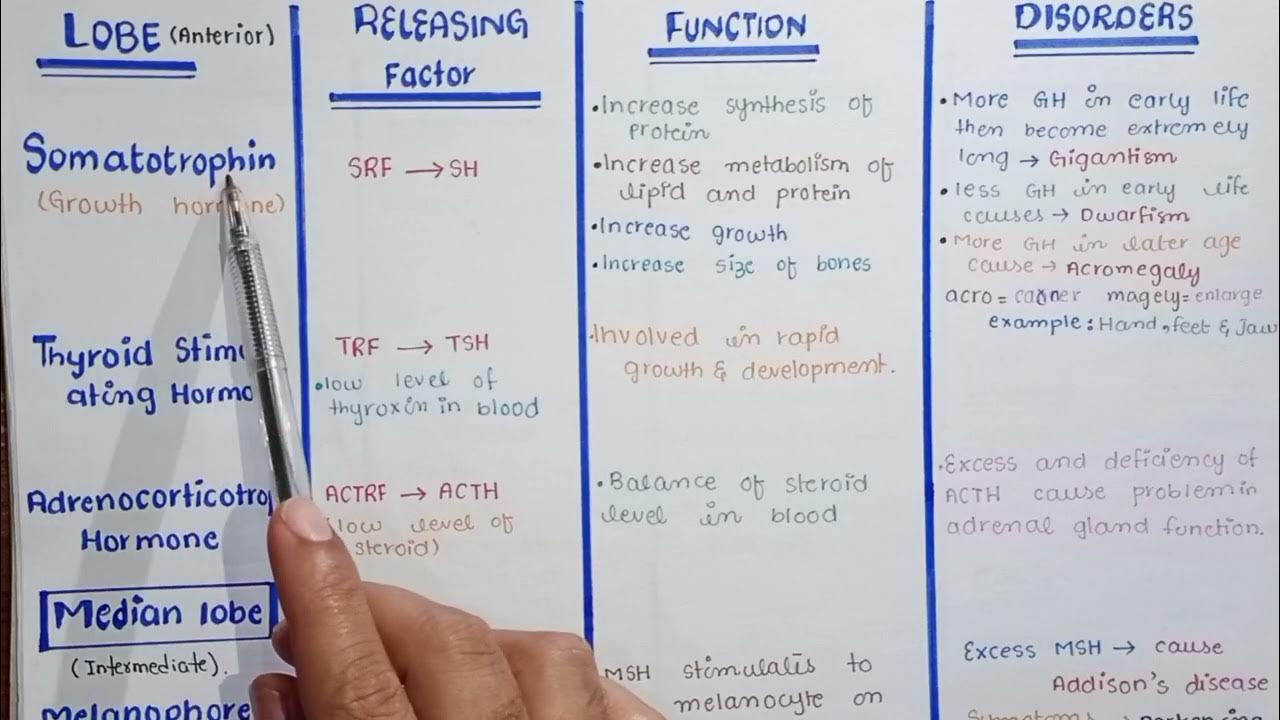 LOBE (Anterior)
RELEASING
Factor
FUNCTION
DISORDERS
Somatotrophin
(Growth hormone)
SRF → SH
•Increase synthesis of
protein
•Increase metabolism of
lipid and protein
•Increase growth
•Increase size of bones
•More GH in early life
then become extremely
long → Gigantism
•less GH in early life
causes → Dwarfism
•More GH in later age
cause → Acromegaly
acro = magely = enlarge
example: Hand, feet & Jaw
Thyroid Stimu
ating Hormo
TRF → TSH
•low level of
thyroxin in blood
•Involved in rapid
growth & development.
Adrenocorticotro
Hormone
ACTRF → ACTH
(low level of
steroid)
•Balance of steroid
level in blood
•Excess and deficiency of
ACTH cause problem in
adrenal gland function.
Median lobe
(Intermediate).
Melanophore
MSH stimulatis to
melanocyte on
Excess MSH → cause
Addison's disease